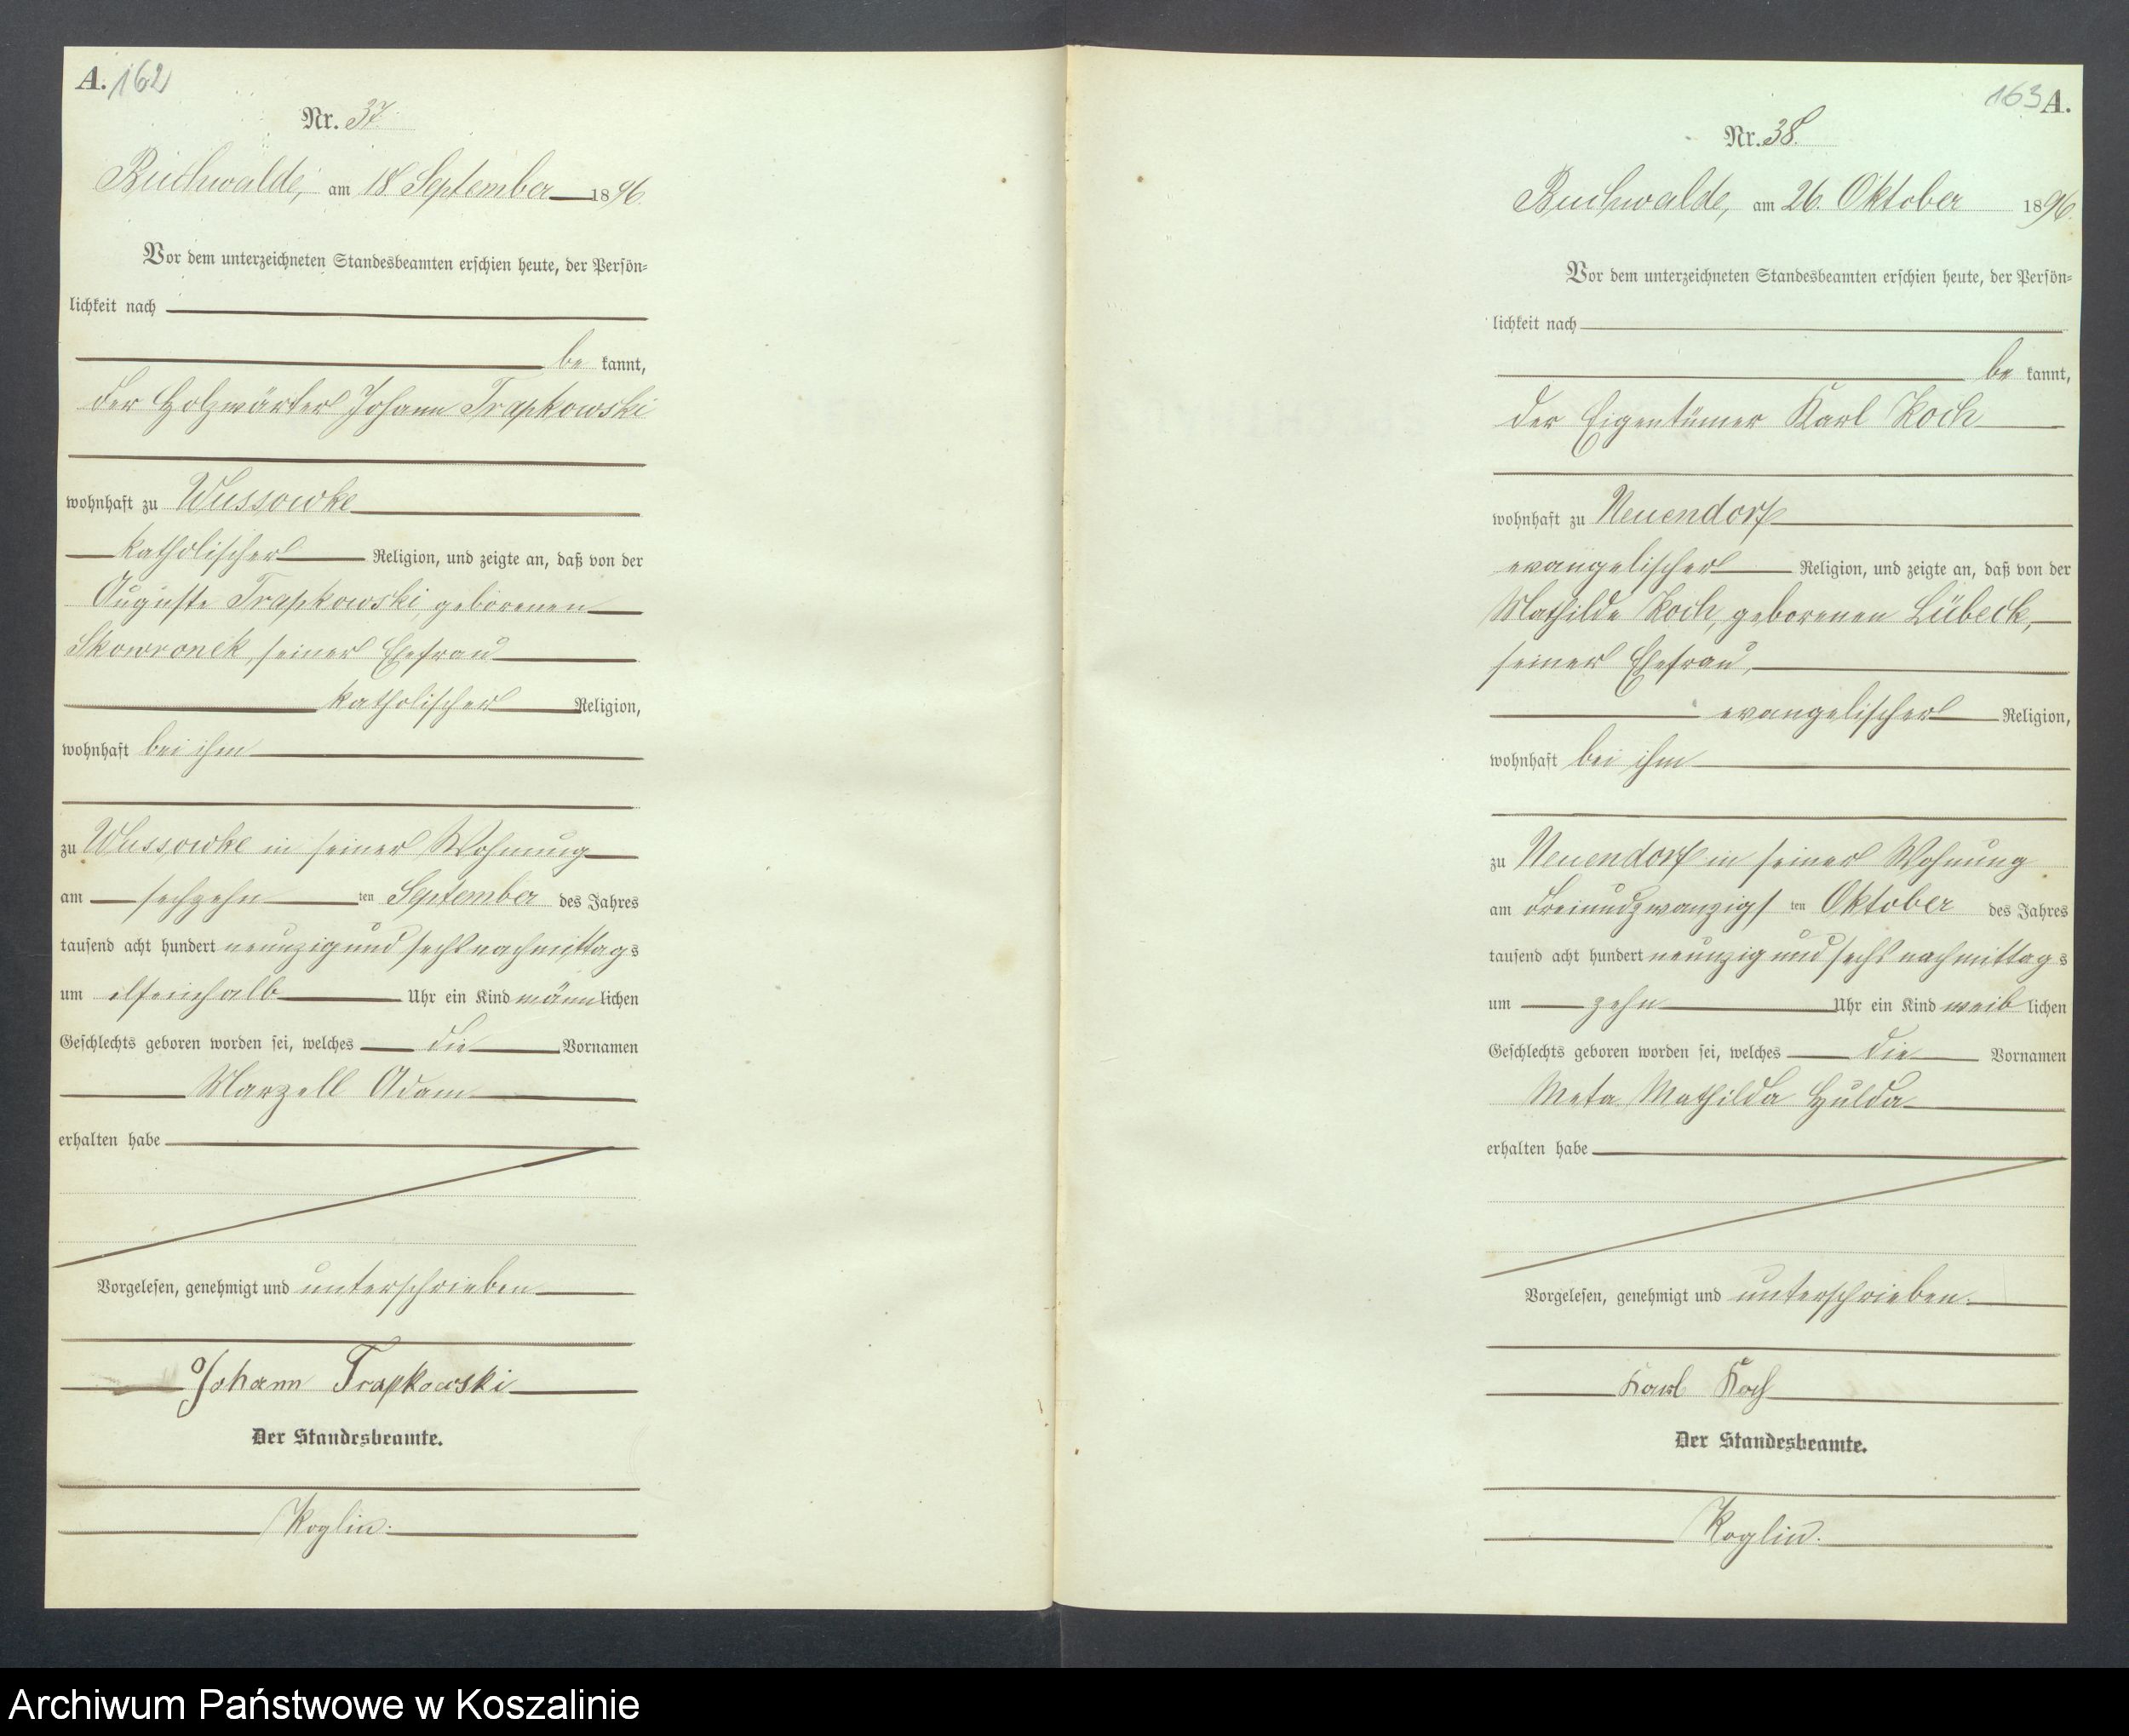 A. 162
Nr. 37.
Buchwalde, am 18 September 1896.
Vor dem unterzeichneten Standesbeamten erschien heute, der Persön-
lichkeit nach
be kannt,
der Holzwärter Johann Trapkowski
wohnhaft zu Wussowke
katholischer Religion, und zeigte an, daß von der
Auguste Trapkowski, geborenen
Skowronek, seiner Ehefrau
katholischer Religion,
wohnhaft bei ihm
zu Wussowke in seiner Wohnung
am sechzehn ten September des Jahres
tausend acht hundert neunzig und sechs nachmittags
um Uhr ein Kind männlichen
Geschlechts geboren worden sei, welches die Vornamen
Marzell Adam
erhalten habe
Vorgelesen, genehmigt und unterschrieben
Johann Trapkowski
Der Standesbeamte.
Koglin.
163 A.
Nr. 38.
Buchwalde, am 26. Oktober 1896.
Vor dem unterzeichneten Standesbeamten erschien heute, der Persön-
lichkeit nach
be kannt,
der Eigentümer Karl Koch
wohnhaft zu Neuendorf
evangelischer Religion, und zeigte an, daß von der
Mathilde Koch, geborenen Lübeck,
seiner Ehefrau,
evangelischer Religion,
wohnhaft bei ihm
zu Neuendorf in seiner Wohnung
am dreiundzwanzigs ten Oktober des Jahres
tausend acht hundert neunzig und sechs nachmittags
um zehn Uhr ein Kind weiblichen
Geschlechts geboren worden sei, welches die Vornamen
Meta Mathilda Hulda
erhalten habe
Vorgelesen, genehmigt und unterschrieben.
Karl Koch
Der Standesbeamte.
Koglin.
Archiwum Państwowe w Koszalinie